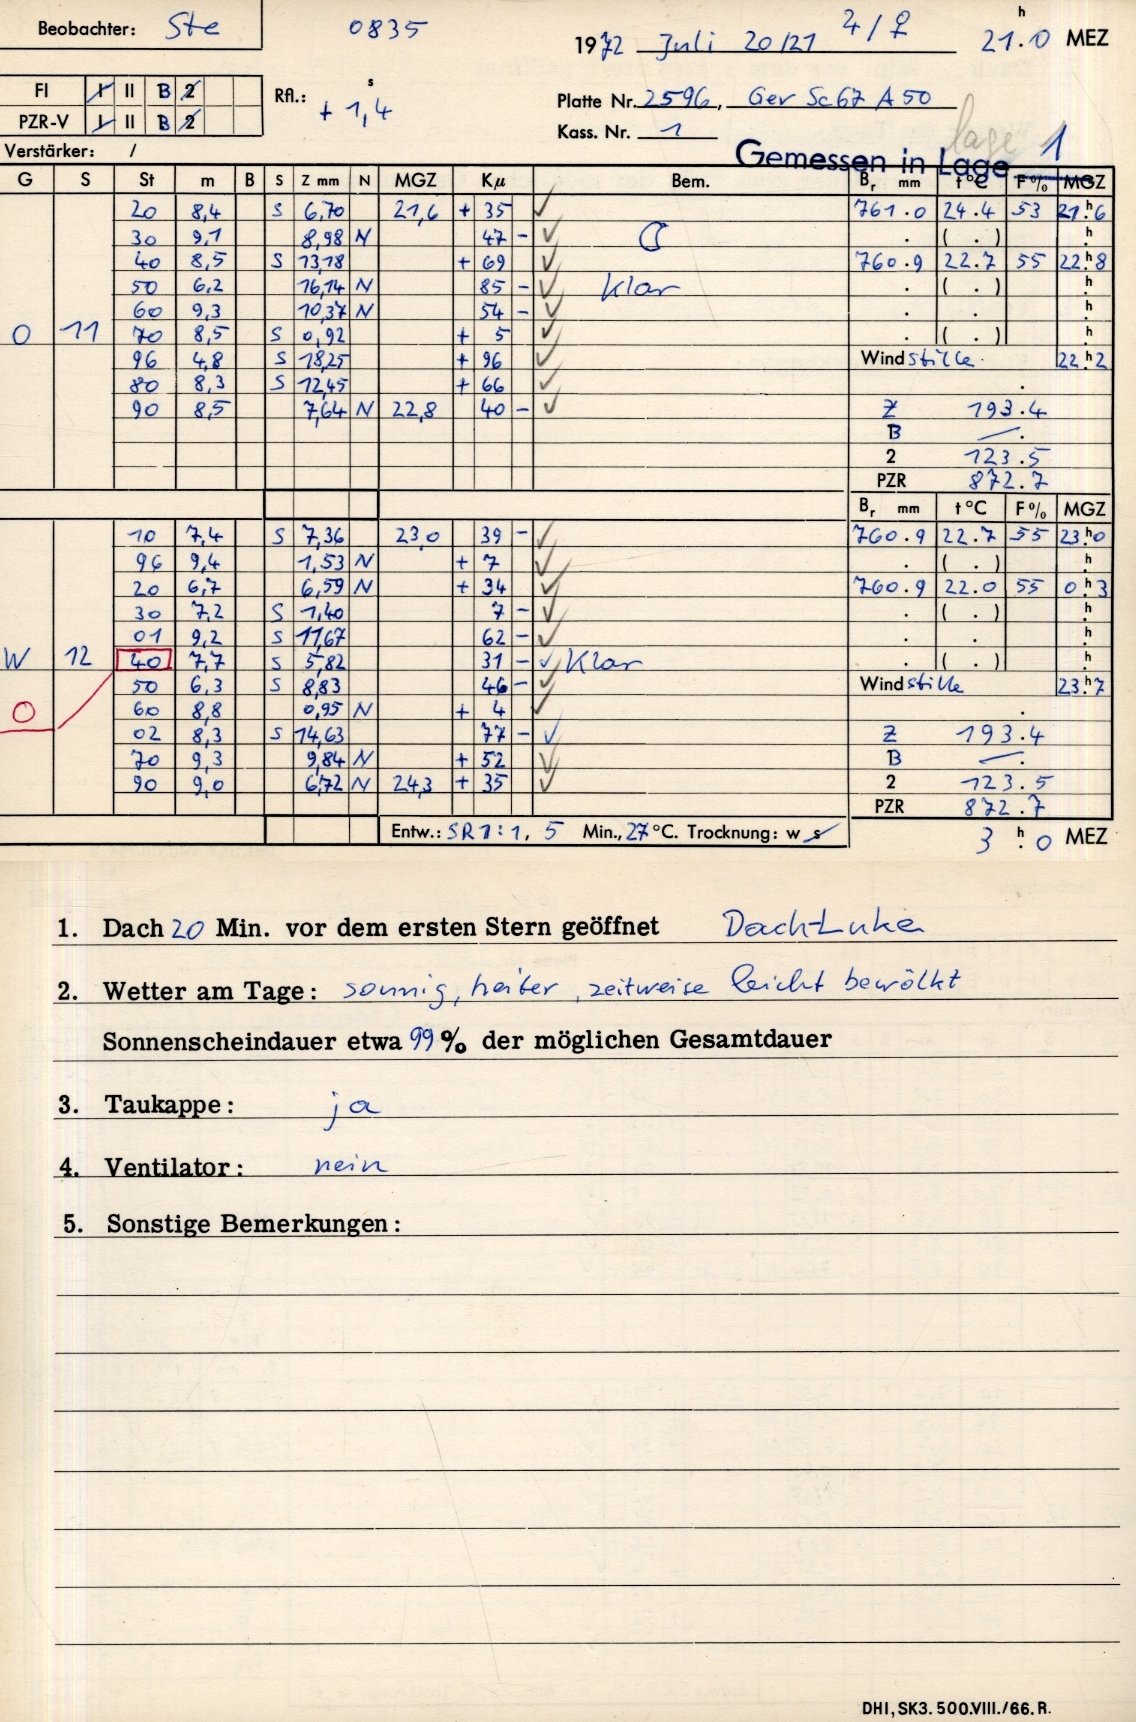 Beobachter: Ste 0835 1972 Juli 20/21 4/♀ 21.h0 MEZ
FI I II B 2
PZR-V I II B 2
Rfl.: + 1,s4
Platte Nr. 2596, Gev Sc67 A50
Kass. Nr. 1
lage
Gemessen in Lage 1
Verstärker: /
G S St m B S Z mm N MGZ Kμ Bem. Br mm t°C F% MGZ
20 8,4 S 6,70 21,6 + 35 ✓ 761.0 24.4 53 21h6
30 9,1 8,98 N 47 - ✓ ☾ . ( . ) h
40 8,5 S 13,18 + 69 ✓ 760.9 22.7 55 22h8
50 6,2 16,14 N 85 - ✓ Klar . ( . ) h
60 9,3 10,37 N 54 - ✓ . . h
O 11 70 8,5 S 0,92 + 5 ✓ . ( . ) h
96 4,8 S 18,25 + 96 ✓ Wind stille. 22h2
80 8,3 S 12,45 + 66 ✓ .
90 8,5 7,64 N 22,8 40 - ✓ Z 193.4
B —.
2 123.5
PZR 872.7
Br mm t°C F% MGZ
10 7,4 S 7,36 23,0 39 - ✓ 760.9 22.7 55 23h0
96 9,4 1,53 N + 7 ✓ . ( . ) h
20 6,7 6,59 N + 34 ✓ 760.9 22.0 55 0h3
30 7,2 S 1,40 7 - ✓ . ( . ) h
01 9,2 S 11,67 62 - ✓ . . h
W 12 40 7,7 S 5,82 31 - ✓ Klar . ( . ) h
50 6,3 S 8,83 46 - ✓ Wind stille 23h7
O 60 8,8 0,95 N + 4 ✓ .
02 8,3 S 14,63 77 - ✓ Z 193.4
70 9,3 9,84 N + 52 ✓ B —.
90 9,0 6,72 N 24,3 + 35 ✓ 2 123.5
PZR 872.7
Entw.: SR 1:1, 5 Min., 27 °C. Trocknung: w s 3 h. 0 MEZ
1. Dach 20 Min. vor dem ersten Stern geöffnet Dach-Luke
2. Wetter am Tage: sonnig, heiter, zeitweise leicht bewölkt
Sonnenscheindauer etwa 99 % der möglichen Gesamtdauer
3. Taukappe: ja
4. Ventilator: nein
5. Sonstige Bemerkungen:
DHI, SK3. 500.VIII./66. R.